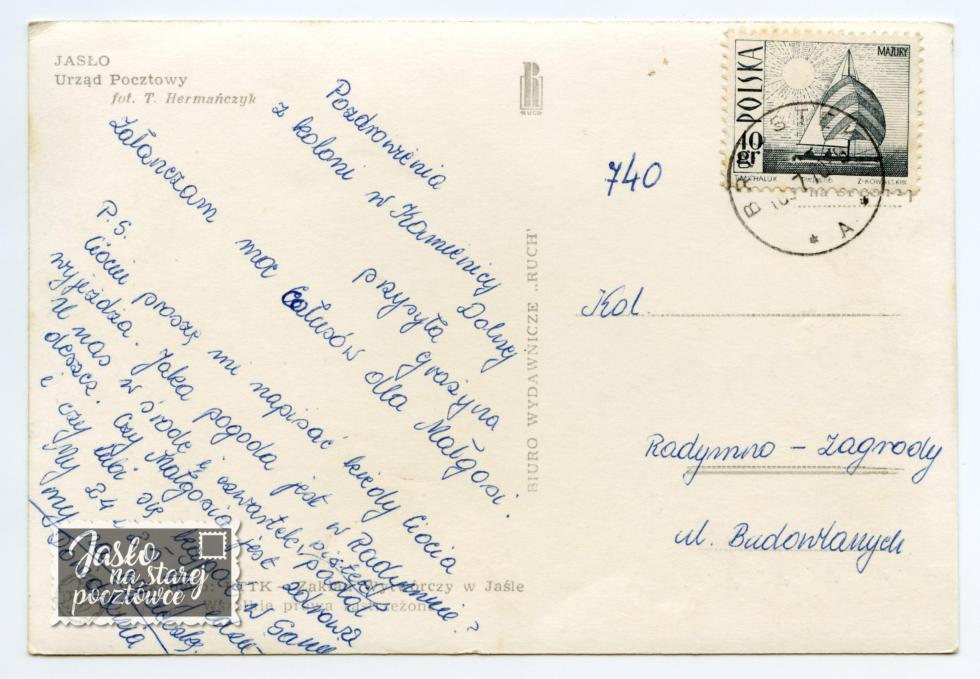 JASŁO
Urząd Pocztowy
fot. T. Hermańczyk
Pozdrowienia
z koloni w Kamienicy Dolnej
przysyła Grażyna
Załanczam moc Całusów dla Małgosi.
P.S. Ciociu proszę mi napisać kiedy Ciocia
wyjeżdża. Jaka pogoda jest w Radymnie?
U nas w środę i czwartek, piątek padał
deszcz. Czy Małgosia jest zdrowa
i czy lubi się kąpać w Sanie
My 24
PTTK – Zakład Wytwórczy w Jaśle
Wszelkie prawa zastrzeżone
RUCH
BIURO WYDAWNICZE „RUCH"
POLSKA
MAZURY
40
gr
Z. KOWALSKI
A
740
Kol.
Radymno – Zagrody
ul. Budowlanych
Jasło
na starej
pocztówce